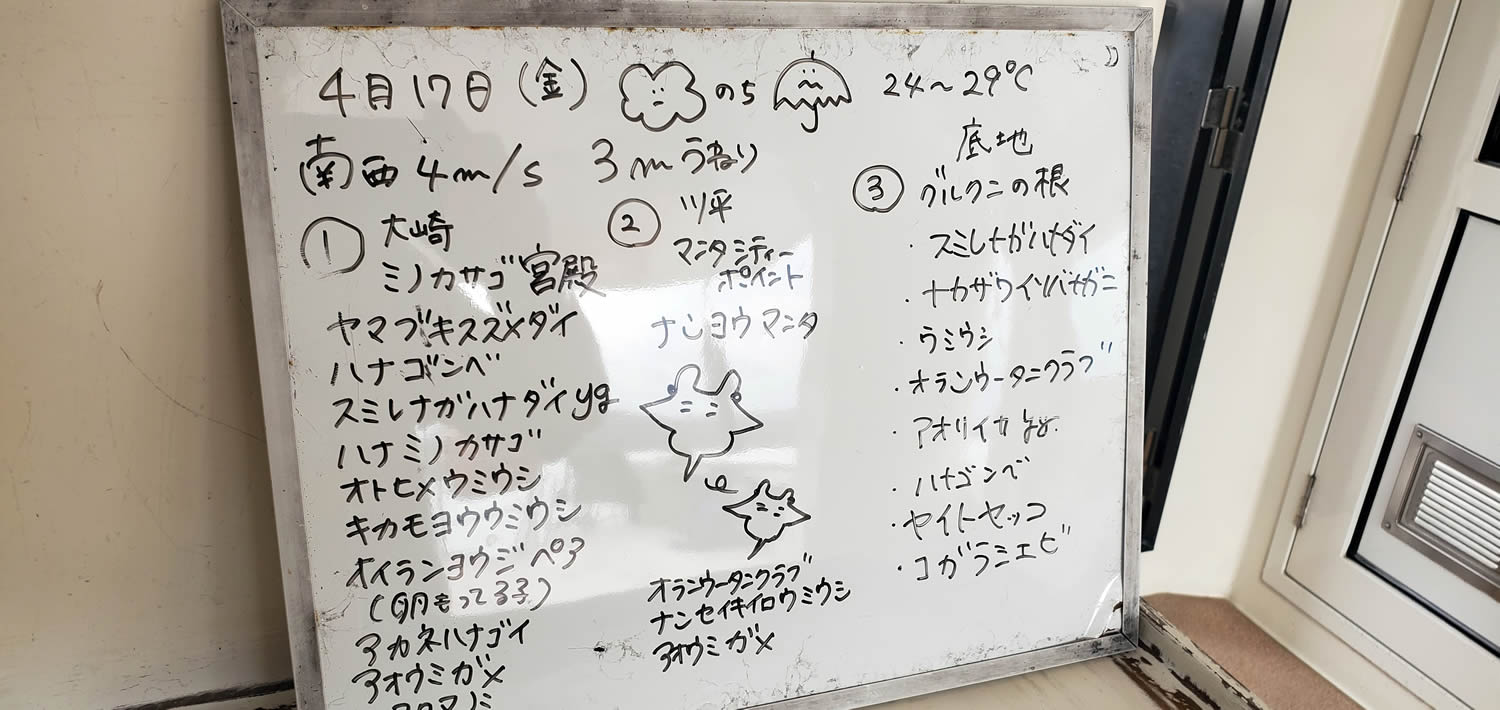 4月17日(金) のち 24〜29℃
南西4m/s 3mうねり
① 大崎
ミノカサゴ宮殿
ヤマブキスズメダイ
ハナゴンベ
スミレナガハナダイyg
ハナミノカサゴ
オトヒメウミウシ
キカモヨウウミウシ
オイランヨウジペア
(卵もってる子)
アカネハナゴイ
アオウミガメ
クマノミ
② ツ平
マンタシティー
ポイント
ナンヨウマンタ
オランウータンクラブ
ナンセイキイロウミウシ
アオウミガメ
底地
③ グルクンの根
・スミレナガハナダイ
・ナカザワイソバナガニ
・ウミウシ
・オランウータンクラブ
・アオリイカ
・ハナゴンベ
・ヤイトヤッコ
・コガラシエビ